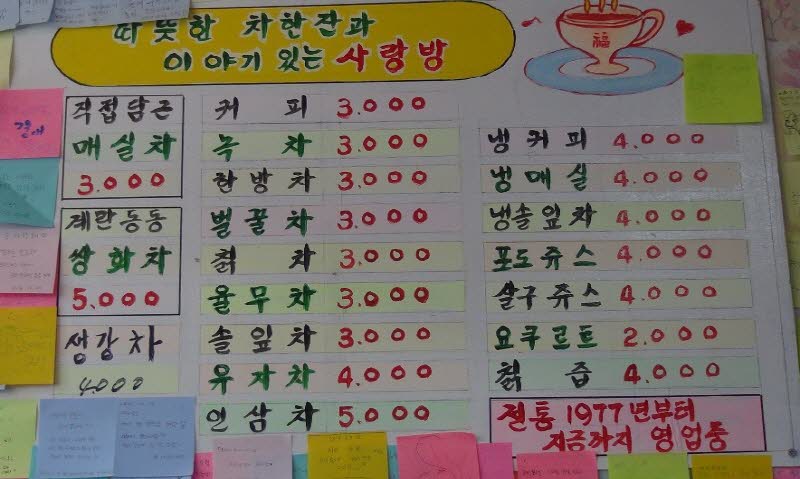 따뜻한 차한잔과
이야기 있는 사랑방
福
직접담근
매실차
3.000
계란동동
쌍화차
5.000
생강차
4000
커 피 3.000
녹 차 3.000
한방차 3.000
벌꿀차 3.000
칡 차 3.000
율무차 3.000
솔잎차 3.000
유자차 4.000
인삼차 5.000
냉커피 4.000
냉매실 4.000
냉솔잎차 4.000
포도쥬스 4.000
살구쥬스 4.000
요쿠르트 2.000
칡 즙 4.000
전통 1977년부터
지금까지 영업중